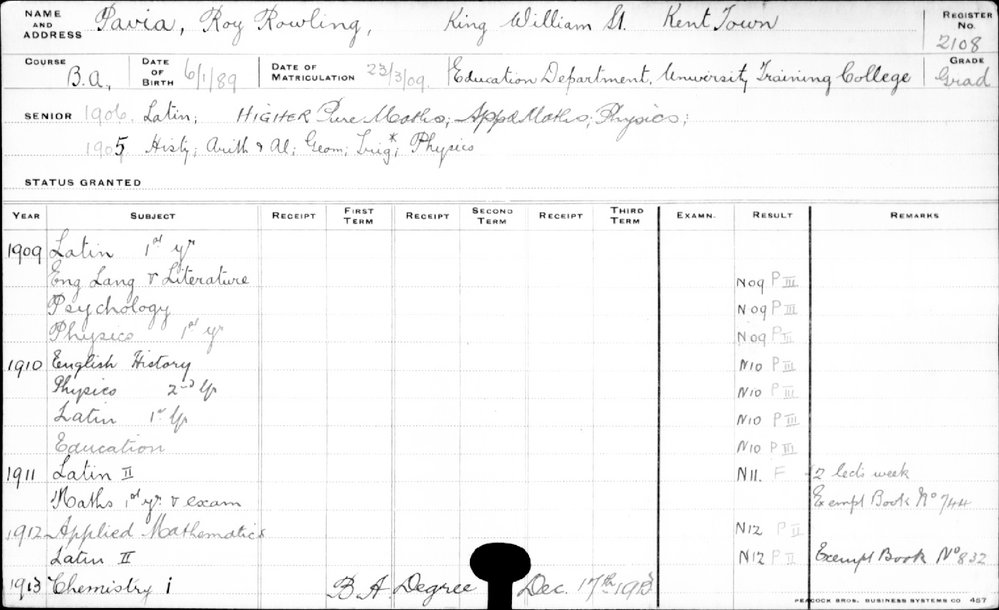 NAME AND ADDRESS Pavia, Roy Rowling, King William St. Kent Town REGISTER No. 2108
COURSE B.A. DATE OF BIRTH 6/1/89 DATE OF MATRICULATION 23/3/09 Education Department, University Training College GRADE Grad
SENIOR 1906. Latin; HIGHER Pure Maths; Appd Maths; Physics;
1905 Histy; Arith & Al; Geom; Trig*; Physics
STATUS GRANTED
YEAR SUBJECT RECEIPT FIRST TERM RECEIPT SECOND TERM RECEIPT THIRD TERM EXAMN. RESULT REMARKS
1909 Latin 1st yr
Eng Lang & Literature N09 P III
Psychology N09 P III
Physics 1st yr N09 P II
1910 English History N10 P III
Physics 2nd Yr N10 P III
Latin 1st Yr N10 P III
Education N10 P III
1911 Latin II N11. F 2 lects week
Maths 1st yr & exam Exempt Book No 744
1912 Applied Mathematics N12 P II
Latin II N12 P II Exempt Book No 832
1913 Chemistry I B.A. Degree Dec. 17th 1913
PEACOCK BROS. BUSINESS SYSTEMS CO 457